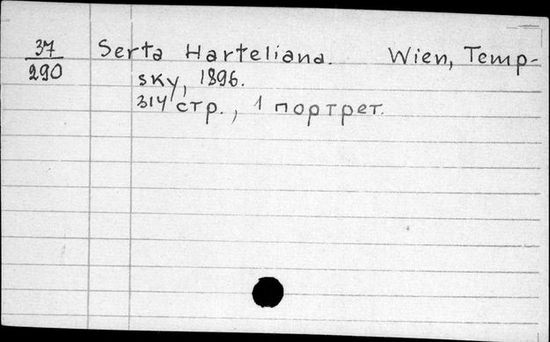 37
290
Serta Harteliana. Wien, Temp-
sky, 1896.
314 стр., 1 портрет.